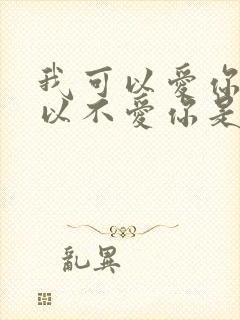 我可以愛你
以不愛你是
亂異